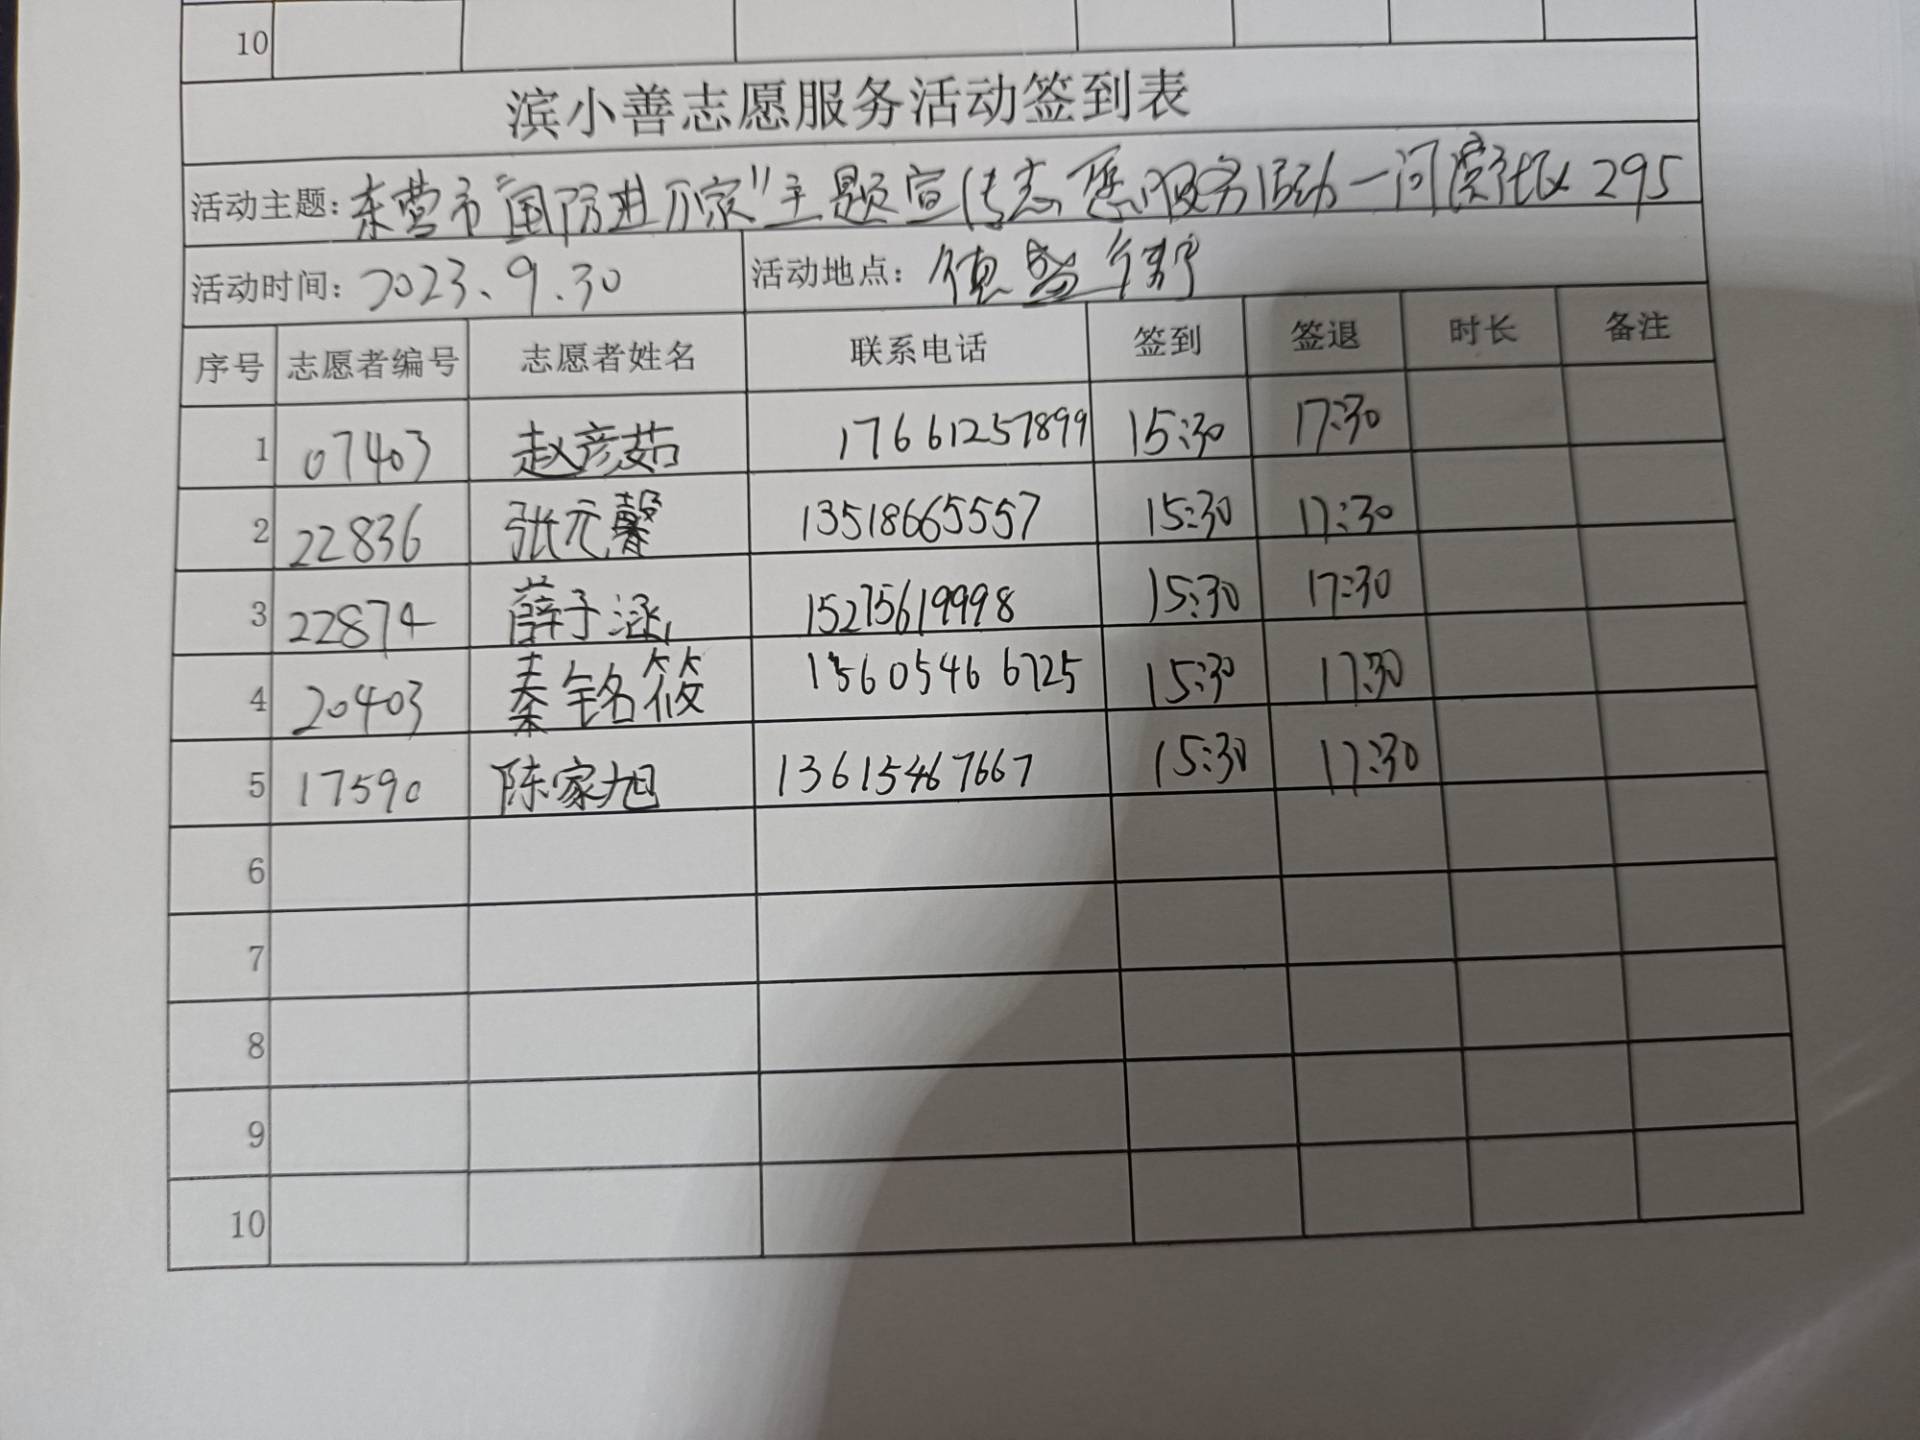 10
滨小善志愿服务活动签到表
活动主题：东营市“国防进万家”主题宣传志愿服务活动—问 社区 295
活动时间：2023.9.30 活动地点：德盛
序号 志愿者编号 志愿者姓名 联系电话 签到 签退 时长 备注
1 07403 赵彦茹 17661257899 15:30 17:30
2 22836 张元馨 13518665557 15:30 17:30
3 22874 薛子涵 15275619998 15:30 17:30
4 20403 秦铭筱 15605466725 15:30 17:30
5 17590 陈家旭 13615467667 15:30 17:30
6
7
8
9
10